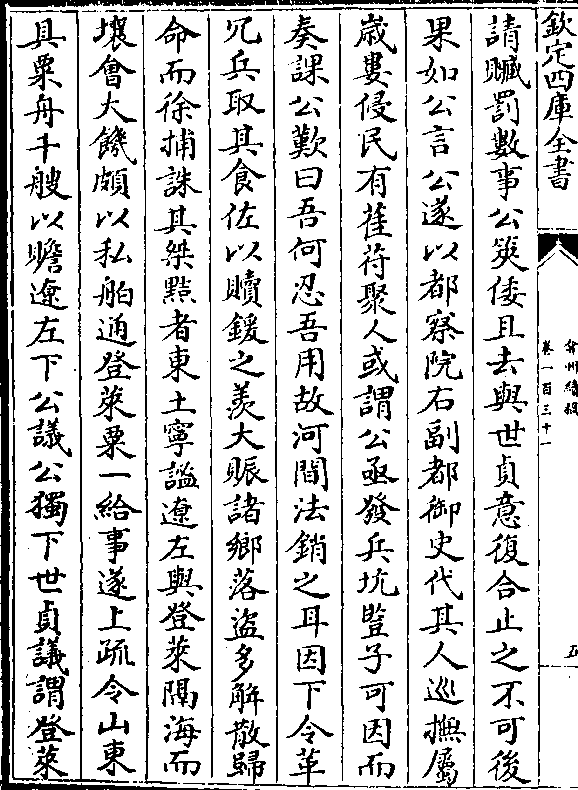 欽定四庫全書
弇州續稿
卷一百三十一
五
請贓罰數事公筴倭且去與世貞意復合止之不可後
果如公言公遂以都察院右副都御史代其人巡撫屬
歳婁侵民有萑苻聚人或謂公亟發兵坑豎子可因而
奏課公歎曰吾何忍吾用故河間法銷之耳因下令革
冗兵取其食佐以贖鍰之羨大賑諸鄉落盜多解散歸
命而徐捕誅其桀黠者東土寧謐遼左與登萊隔海而
壤會大饑頗以私舶通登萊粟一給事遂上疏令山東
具粟舟千艘以贍遼左下公議公獨下世貞議謂登萊